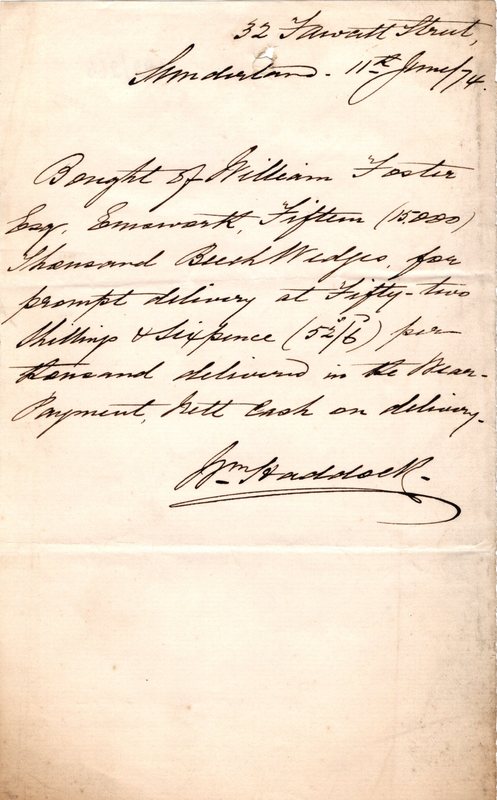 32 Fawcett Street,
Sunderland. 11th June/74.
Bought of William Foster
Esq, Emsworth, Fifteen (15.000)
Thousand Beech Wedges, for
prompt delivery at Fifty-two
Shillings & Sixpence (52/6) per
thousand delivered in the Wear-
Payment, Nett Cash on delivery-
Wm Haddock-